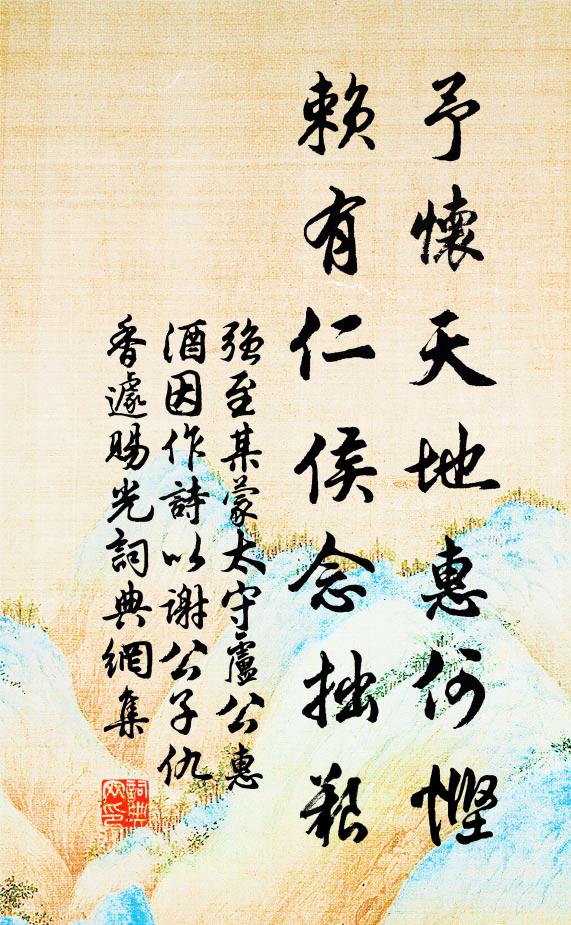 予懷天地惠何慳
賴有仁侯念拙艱
強至某蒙太守盧公惠
酒因作詩以謝公子仇
香遽賜光詞典網集